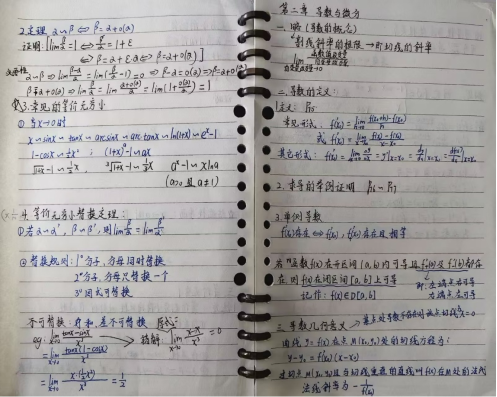 2.定理 α~β ⇔ β=α+o(α)
证明: [lim β/α = 1 ⇔ β/α = 1+ε
⇔ β=α+εα ⇔ β=α+o(α)]
必要性
α~β ⇒ lim (β-α)/α = lim(β/α - 1) = 0 ⇒ β-α=o(α) ⇒ β=α+o(α)
β=α+o(α) ⇒ lim β/α = lim (α+o(α))/α = lim(1+o(α)/α) = 1
3.常见的等价无穷小
① 当x→0时
x~sinx~tanx~arcsinx~arctanx~ln(1+x)~e^x-1
1-cosx~½x² ; (1+x)^a-1~ax
a^x-1~xlna
(a>0且a≠1)
4.等价无穷小替换定理:
①若α~α', β~β', 则lim β/α = lim β'/α'
②替换规则: 1°分子、分母同时替换
2°分子、分母只替换一个
3°因式可替换
不可替换: 和、差不可替换
eg: lim x→0 (tanx-sinx)/x³ 错解: lim x→0 (x-x)/x³ = 0
= lim x→0 tanx(1-cosx)/x³
= lim x→0 x·(½x²)/x³ = 1/2
第二章 导数与微分
一、略 (导数的概念)
割线斜率的极限→即切线的斜率
lim 函数值改变量/自变量改变量
自变量改变量→0
二、导数的定义
1.定义:
常见形式: f'(x₀) = lim h→0 (f(x₀+h)-f(x₀))/h
或 f'(x₀) = lim x→x₀ (f(x)-f(x₀))/(x-x₀)
其它形式: f'(x₀) = lim Δx→0 Δy/Δx = y'|x=x₀ = dy/dx|x=x₀ = df(x)/dx|x=x₀
2.求导的举例证明
3.单侧导数
f'(x₀)存在 ⇔ f'₋(x₀), f'₊(x₀)存在且相等
若函数f(x)在开区间(a,b)内可导且f'₊(a)及f'₋(b)都存
在,则f(x)在闭区间[a,b]上可导
即: 左端点右可导
右端点左可导
记作: f(x)∈D[a,b]
三、导数几何意义
曲线y=f(x)在点M(x₀,y₀)处的切线方程为:
y-y₀=f'(x₀)(x-x₀)
过切点M(x₀,y₀)且与切线垂直的直线叫f(x)在M处的法线
法线斜率为 -1/f'(x₀)